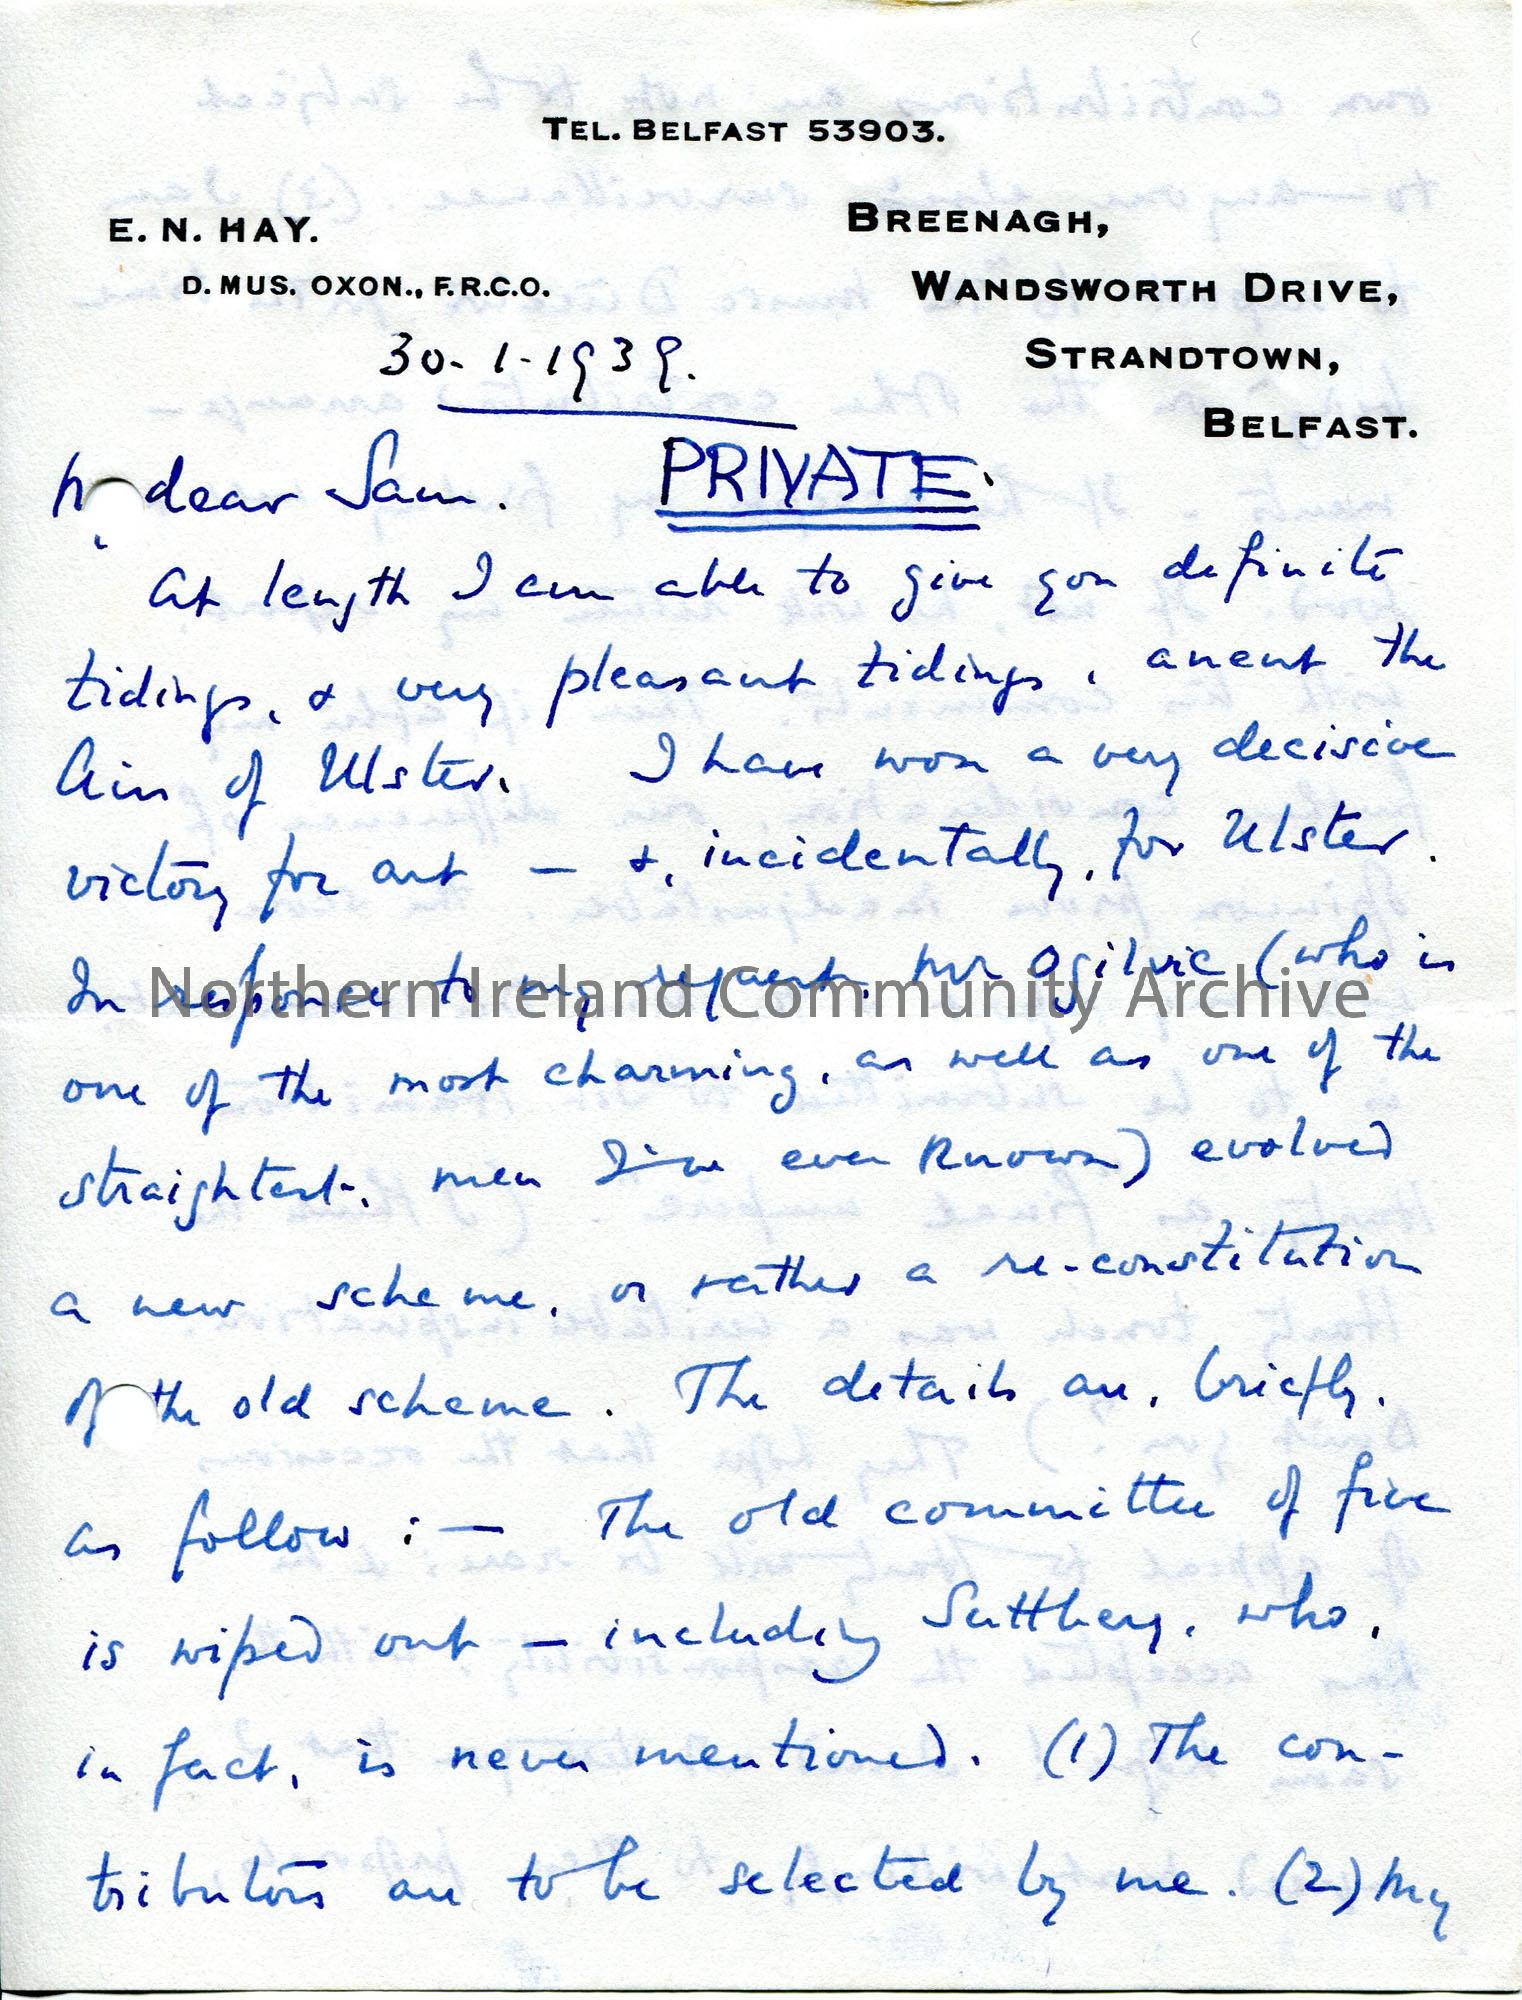 TEL. BELFAST 53903.
E. N. HAY.
D. MUS. OXON., F.R.C.O.
BREENAGH,
WANDSWORTH DRIVE,
STRANDTOWN,
BELFAST.
30-1-1939.
PRIVATE.
dear Sam.
At length I am able to give you definite
tidings, & very pleasant tidings, anent the
Airs of Ulster. I have won a very decisive
victory for art — &, incidentally, for Ulster.
In response to my request, Mr Ogilvie (who is
one of the most charming, as well as one of the
straightest, men I've ever known) evolved
a new scheme, or rather a re-constitution
of the old scheme. The details are, briefly,
as follow :— The old committee of five
is wiped out — including Suttbery, who,
in fact, is never mentioned. (1) The con-
tributors are to be selected by me. (2) My
Northern Ireland Community Archive